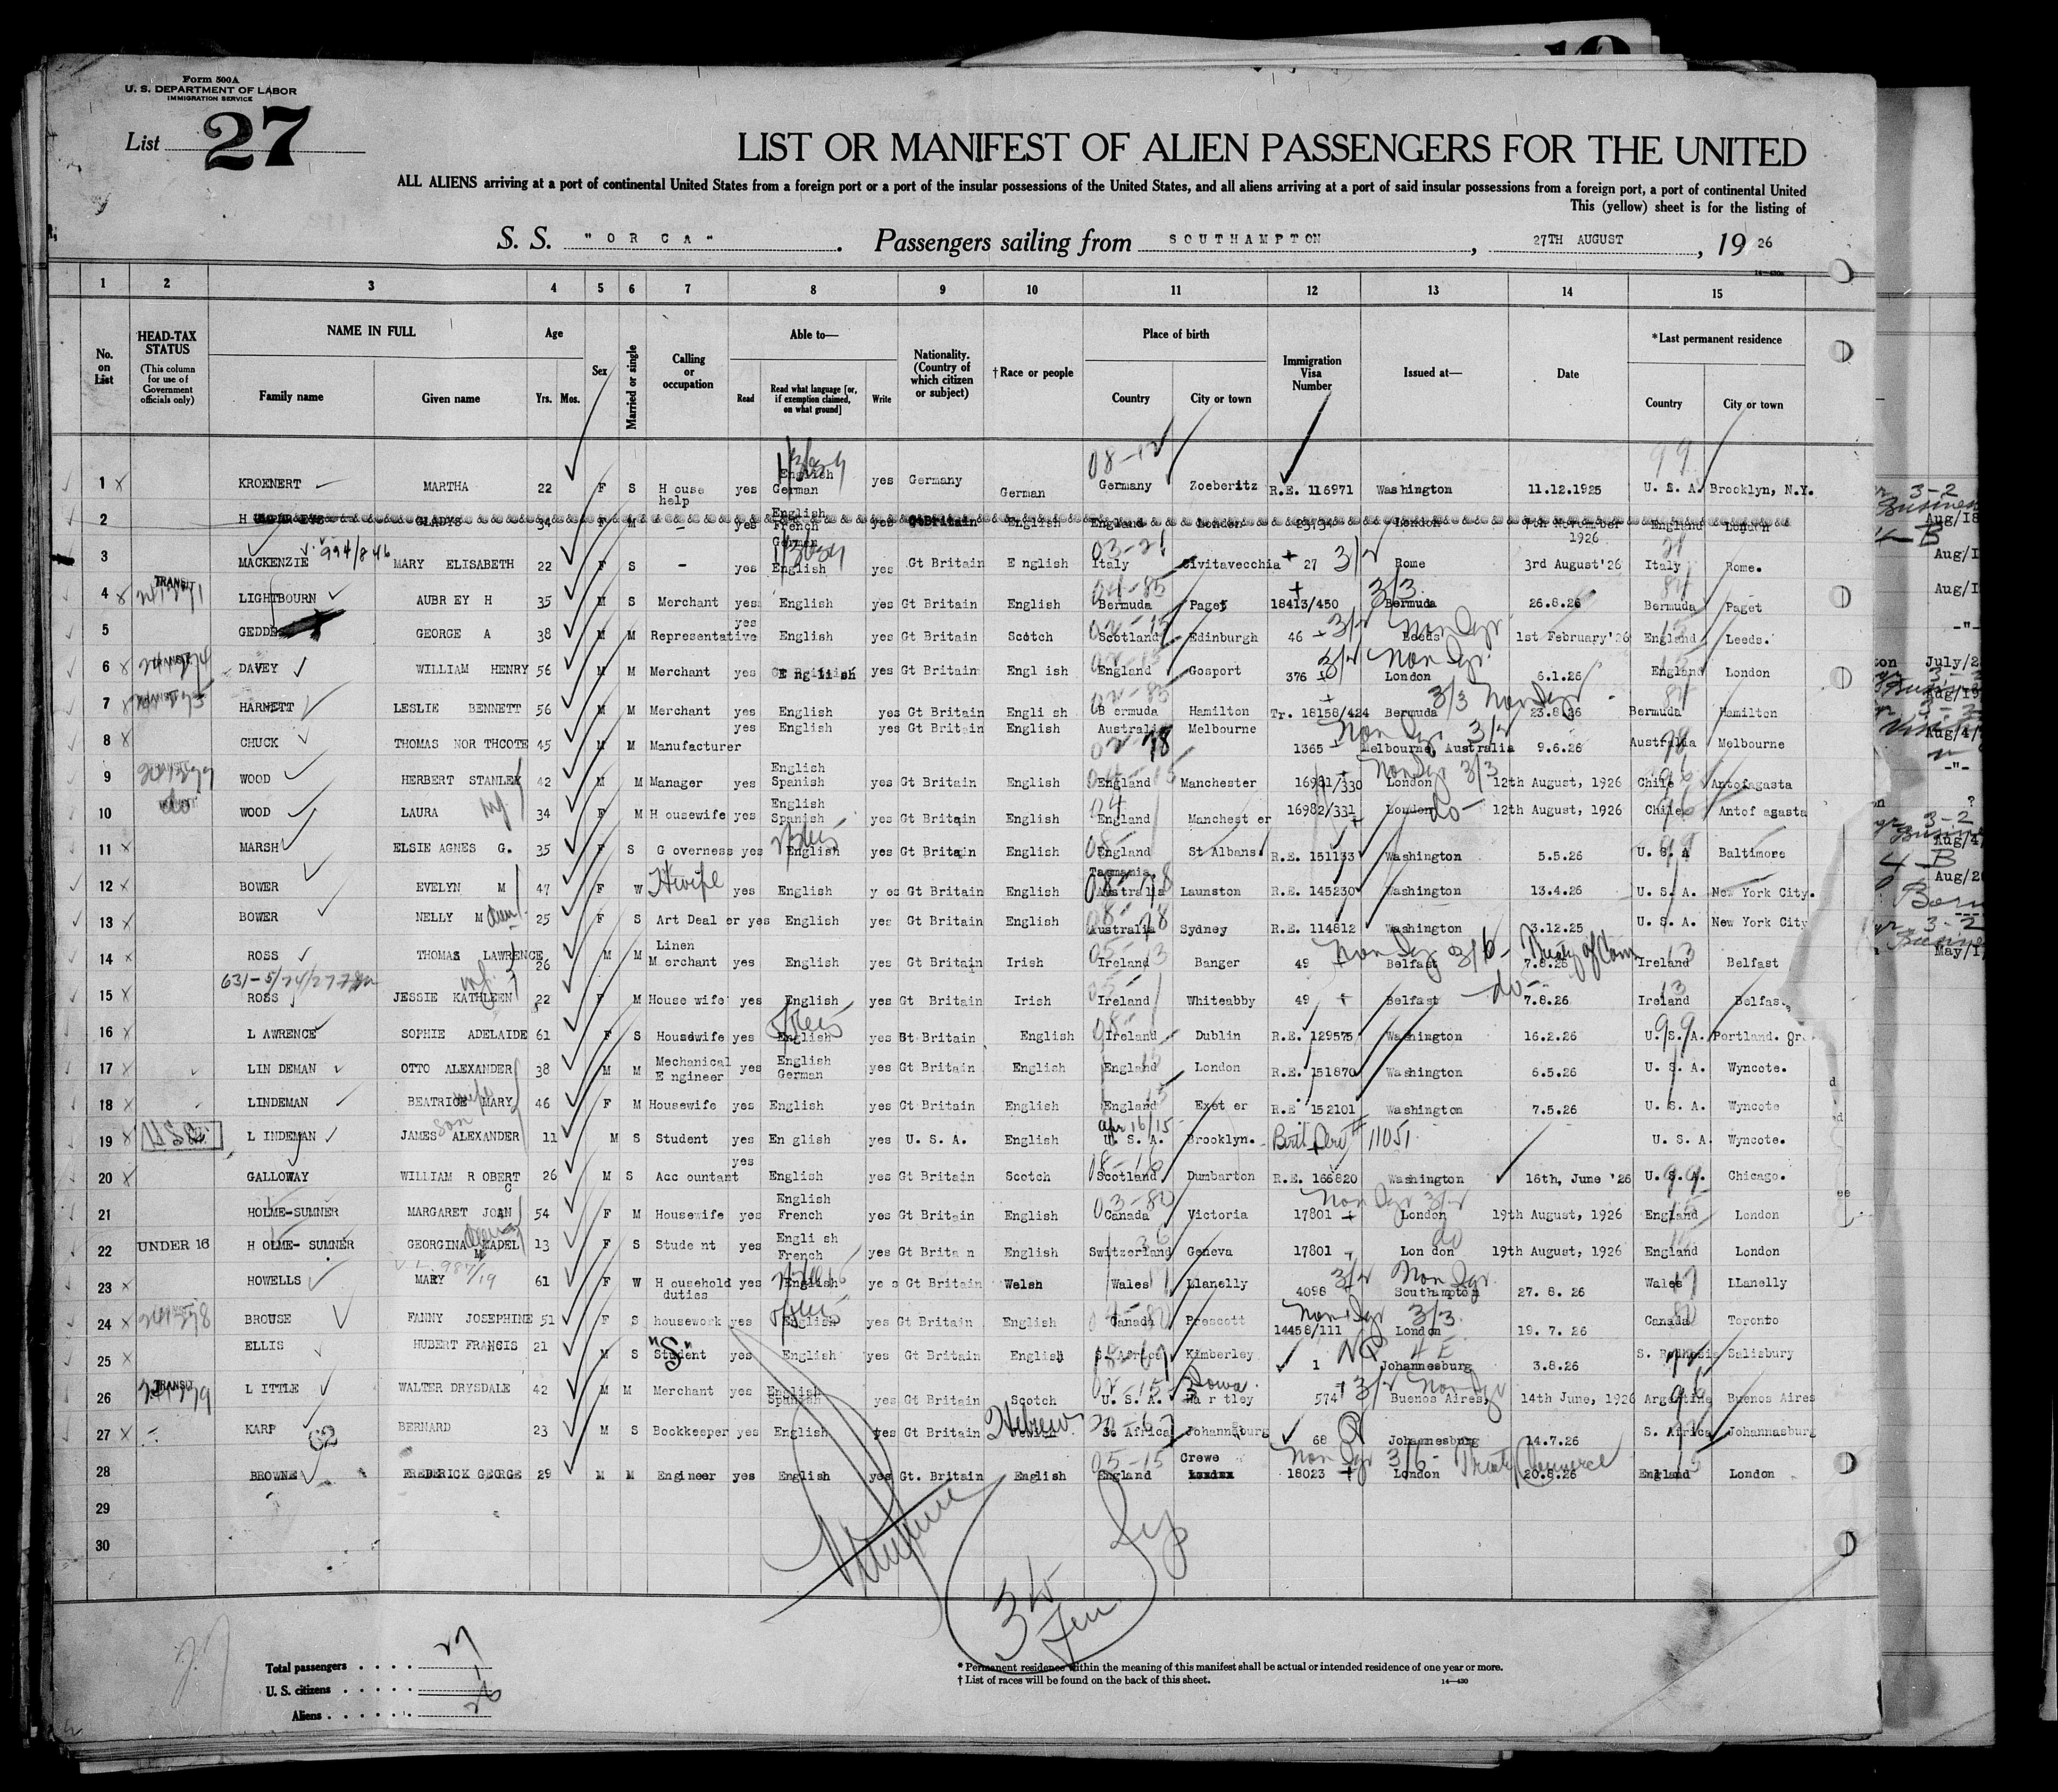 Form 500A
U. S. DEPARTMENT OF LABOR
IMMIGRATION SERVICE
List 27
LIST OR MANIFEST OF ALIEN PASSENGERS FOR THE UNITED
ALL ALIENS arriving at a port of continental United States from a foreign port or a port of the insular possessions of the United States, and all aliens arriving at a port of said insular possessions from a foreign port, a port of continental United
This (yellow) sheet is for the listing of
S. S. "ORCA". Passengers sailing from SOUTHAMPTON, 27TH AUGUST, 19 26
1 2 3 4 5 6 7 8 9 10 11 12 13 14 15
No. on List
HEAD-TAX STATUS
(This column for use of Government officials only)
NAME IN FULL
Family name Given name
Age
Yrs. Mos.
Sex
Married or single
Calling or occupation
Able to—
Read
Read what language [or, if exemption claimed, on what ground]
Write
Nationality. (Country of which citizen or subject)
†Race or people
Place of birth
Country City or town
Immigration Visa Number
Issued at—
Date
*Last permanent residence
Country City or town
1 KROENERT MARTHA 22 F S House help yes English German yes Germany German Germany Zoeberitz R.E. 116971 Washington 11.12.1925 U. S. A. Brooklyn, N.Y.
2 GLADYS 34 F M - yes English French German yes Gt Britain English England London London 7th November 1926 England London
3 MACKENZIE 994/846 MARY ELISABETH 22 F S - yes English yes Gt Britain English Italy Civitavecchia 27 Rome 3rd August'26 Italy Rome.
4 TRANSIT LIGHTBOURN AUBREY H 35 M S Merchant yes English yes Gt Britain English Bermuda Paget 18413/450 3/3 Bermuda 26.8.26 Bermuda Paget
5 GEDDES GEORGE A 38 M M Representative yes English yes Gt Britain Scotch Scotland Edinburgh 46 Leeds 1st February'26 England Leeds.
6 TRANSIT DAVEY WILLIAM HENRY 56 M M Merchant yes English yes Gt Britain English England Gosport 376 London 6.1.26 England London
7 TRANSIT HARNETT LESLIE BENNETT 56 M M Merchant yes English yes Gt Britain English Bermuda Hamilton Tr. 18158/424 Bermuda 3/3 23.8.26 Bermuda Hamilton
8 CHUCK THOMAS NORTHCOTE 45 M M Manufacturer yes English yes Gt Britain English Australia Melbourne 1365 Melbourne, Australia 9.6.26 Australia Melbourne
9 TRANSIT WOOD HERBERT STANLEY 42 M M Manager yes English Spanish yes Gt Britain English England Manchester 16981/330 London 3/3 12th August, 1926 Chile Antofagasta
10 do WOOD LAURA wf 34 F M Housewife yes English Spanish yes Gt Britain English England Manchester 16982/331 London do 12th August, 1926 Chile Antofagasta
11 MARSH ELSIE AGNES G. 35 F S Governess yes English yes Gt Britain English England St Albans R.E. 151133 Washington 5.5.26 U. S. A Baltimore
12 BOWER EVELYN M 47 F W Hwife yes English yes Gt Britain English Tasmania. Australia Launston R.E. 145230 Washington 13.4.26 U. S. A. New York City.
13 BOWER NELLY M 25 F S Art Dealer yes English yes Gt Britain English Australia Sydney R.E. 114812 Washington 3.12.25 U. S. A. New York City
14 ROSS THOMAS LAWRENCE 26 M M Linen Merchant yes English yes Gt Britain Irish Ireland Banger 49 Belfast 3/6 Treaty of Com 7.8.26 Ireland Belfast
15 ROSS JESSIE KATHLEEN wf. 22 F M House wife yes English yes Gt Britain Irish Ireland Whiteabby 49 Belfast do 7.8.26 Ireland Belfast
16 LAWRENCE SOPHIE ADELAIDE 61 F S Housewife yes English yes Gt Britain English Ireland Dublin R.E. 129575 Washington 16.2.26 U.S.A. Portland. Or.
17 LINDEMAN OTTO ALEXANDER 38 M M Mechanical Engineer yes English German yes Gt Britain English England London R.E. 151870 Washington 6.5.26 U. S. A. Wyncote.
18 LINDEMAN BEATRICE MARY wife 46 F M Housewife yes English yes Gt Britain English England Exeter R.E 152101 Washington 7.5.26 U. S. A. Wyncote
19 LINDEMAN JAMES ALEXANDER son 11 M S Student yes English yes U. S. A. English apr 16/15 U. S. A. Brooklyn. 11051 U. S. A Wyncote.
20 GALLOWAY WILLIAM ROBERT C 26 M S Accountant yes English yes Gt Britain Scotch Scotland Dumbarton R.E. 166820 Washington 16th, June '26 U. S. A. Chicago.
21 HOLME-SUMNER MARGARET JOAN 54 F M Housewife yes English French yes Gt Britain English Canada Victoria 17801 London 19th August, 1926 England London
22 UNDER 16 HOLME-SUMNER GEORGINA MADEL 13 F S Student yes English French yes Gt Britain English Switzerland Geneva 17801 London do 19th August, 1926 England London
23 HOWELLS MARY 61 F W Household duties yes English yes Gt Britain Welsh Wales Llanelly 4098 Southampton 27. 8. 26 Wales LLanelly
24 BROUSE FANNY JOSEPHINE 51 F S housework yes English yes Gt Britain English Canada Prescott 14458/111 London 3/3 19. 7. 26 Canada Toronto
25 ELLIS HUBERT FRANCIS 21 M S Student "S" yes English yes Gt Britain English S. Africa Kimberley 1 Johannesburg 3.8.26 S. Rhodesia Salisbury
26 TRANSIT LITTLE WALTER DRYSDALE 42 M M Merchant yes English Spanish yes Gt Britain Scotch U. S. A. Hartley Iowa. 574 Buenos Aires, 14th June, 1926 Argentine Buenos Aires
27 KARP BERNARD 23 M S Bookkeeper yes English yes Gt Britain Hebrew S. Africa Johannesburg 68 Johannesburg 14.7.26 S. Africa Johannasburg
28 BROWNE FREDERICK GEORGE 29 M M Engineer yes English yes Gt. Britain English England Crewe 18023 London 3/6 Treaty Commerce 20.8.26 England London
29
30
Total passengers . . . . 27
U. S. citizens . . . . . 1
Aliens . . . . . . 26
* Permanent residence within the meaning of this manifest shall be actual or intended residence of one year or more.
† List of races will be found on the back of this sheet.
14—430